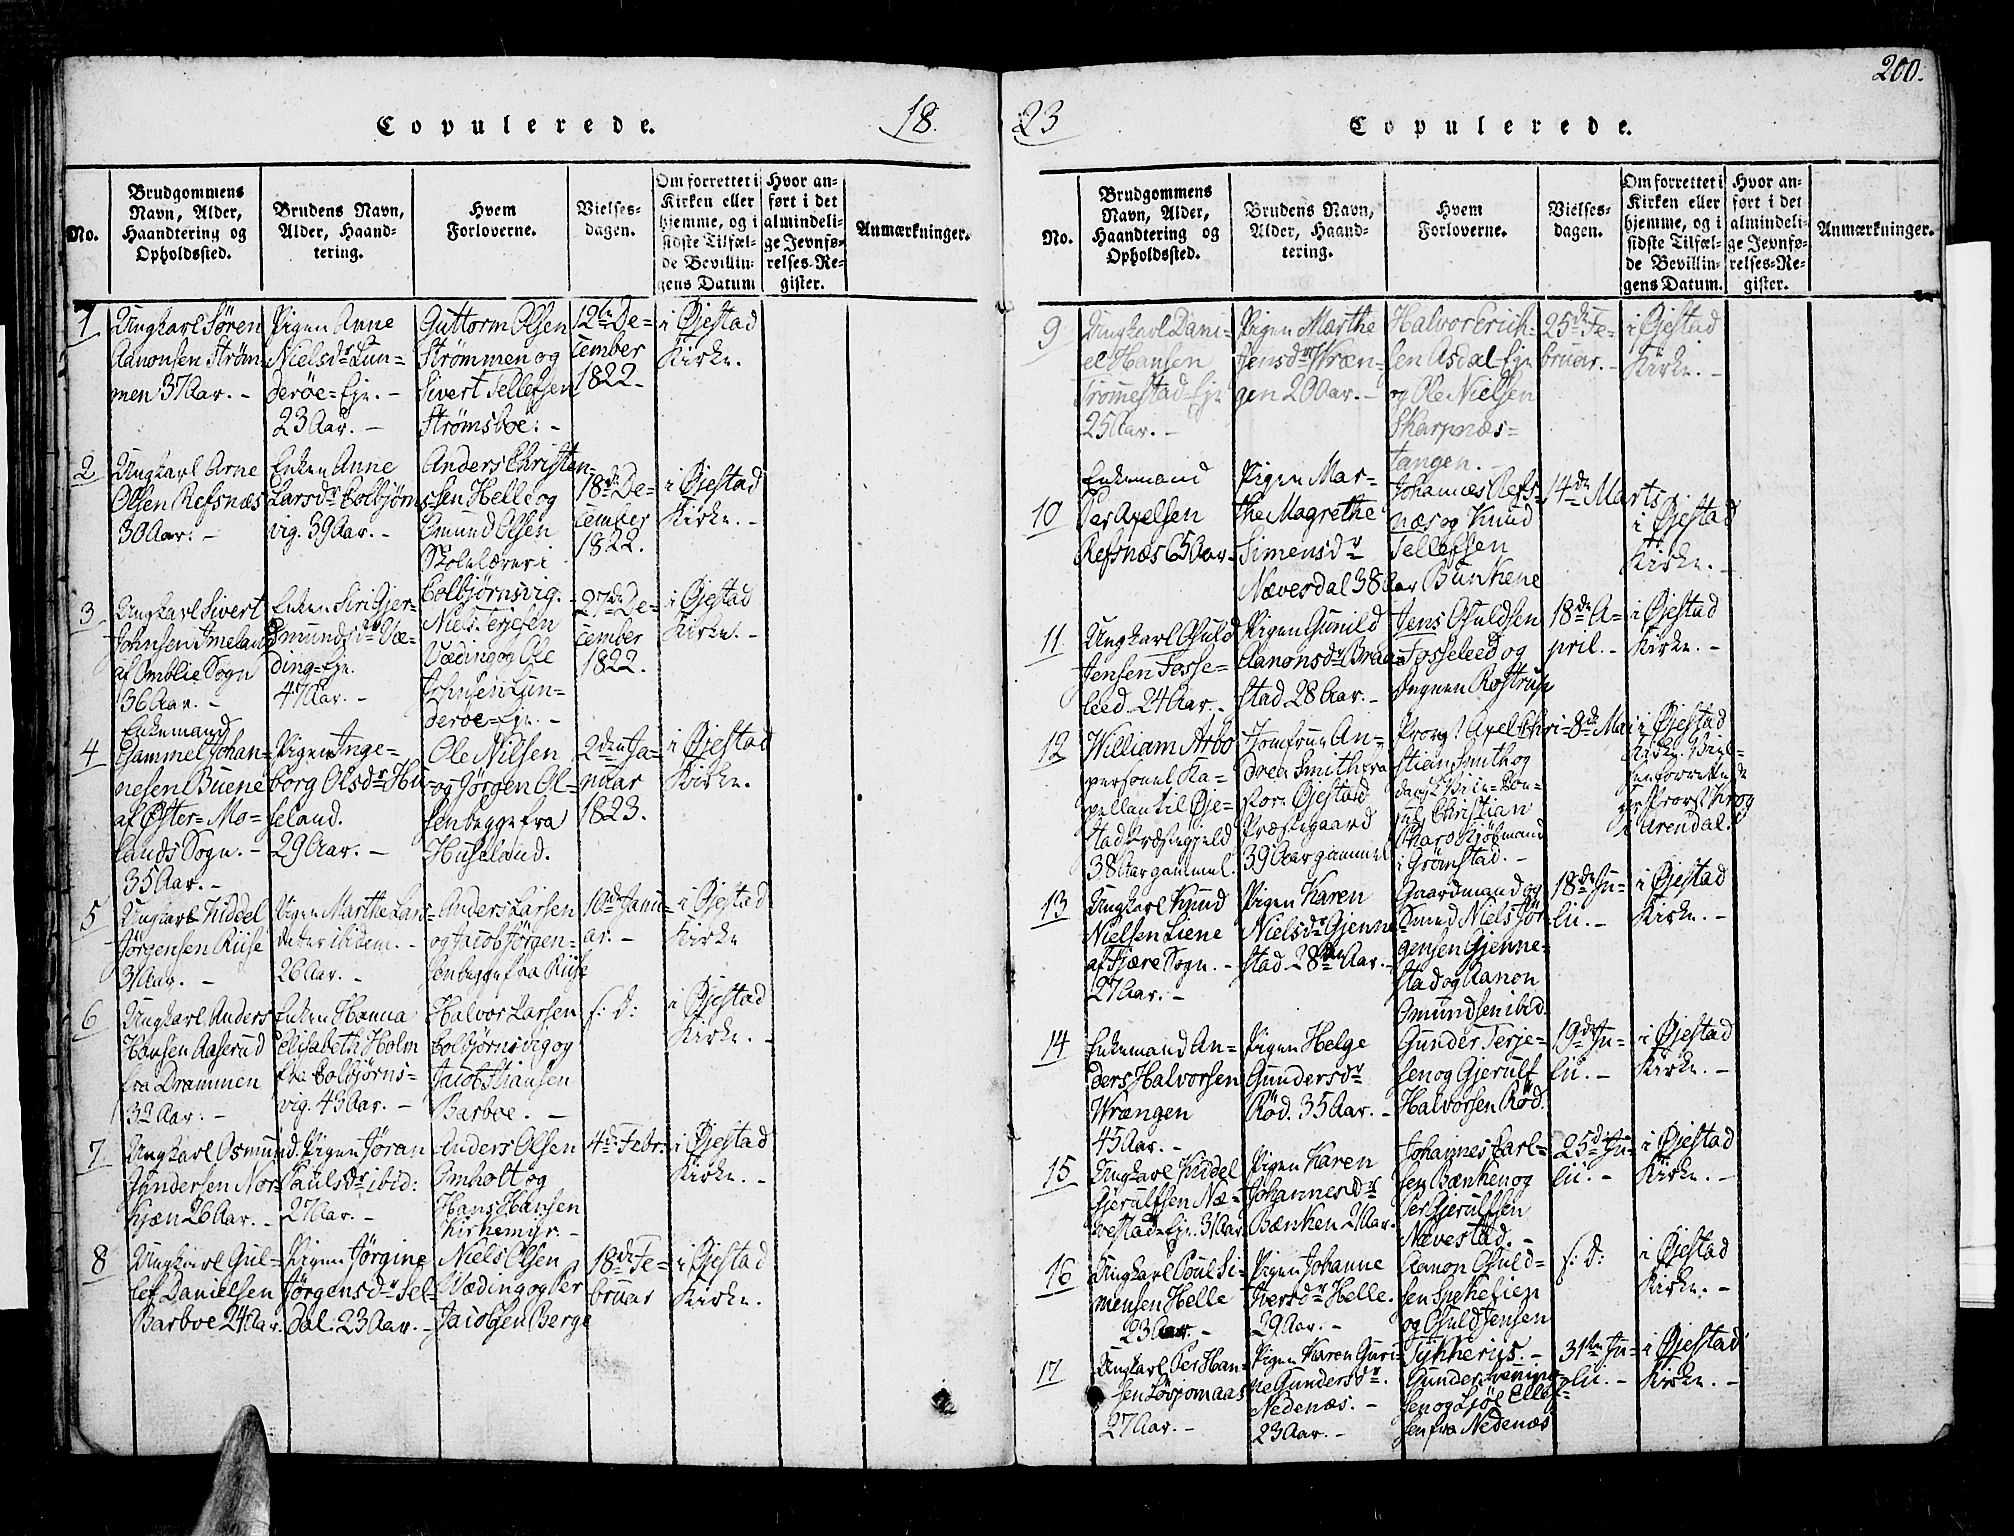 200.
Copulerede.
18
23
Copulerede.
No.
Brudgommens
Navn, Alder,
Haandtering og
Opholdssted.
Brudens Navn,
Alder, Haand-
tering.
Hvem
Forloverne.
Vielses-
dagen.
Om forrettet i
Kirken eller
hjemme, og i
sidste Tilfæl-
de Bevillin-
gens Datum
Hvor an-
ført i det
almindeli-
ge Jevnfø-
relses-Re-
gister.
Anmærkninger.
1
Ungkarl Søren
Aanonsen Strøm-
men 37 Aar. -
Pigen Anne
Nielsdr Lun-
derøe=Eje. -
23 Aar. -
Guttorm Olsen
Strømmen og
Sivert Tellefsen
Strømsboe. -
12te De-
cember
1822.
i Øjestad
Kirke.
2
Ungkarl Arne
Olsen Refsnæs
30 Aar. -
Enken Anne
Larsdr Colbjørns-
vig. 39 Aar. -
Anders Christen-
sen Helle og
Omund Olsen
Skolelærer i
Colbjørnsvig. -
18de De-
cember
1822.
i Øjestad
Kirke. -
3
Ungkarl Sivert
Johnsen Imeland
af Omblie Sogn
36 Aar. -
Enken Siri Gjer-
mundsdr Væ-
ding=Eje.
47 Aar. -
Niels Terjesen
Væding og Ole
Johnsen Lun-
derøe=Eje. -
27de De-
cember
1822.
i Øjestad
Kirke. -
4
Enkemand
Gammel Johan-
nesen Buene
af Øster=Mo-
lands Sogn. -
35 Aar. -
Pigen Inge-
borg Olsdr Hu-
seland.
29 Aar. -
Ole Nilsen
og Jørgen Ol-
sen begge fra
Huseland.
2den Ja-
nuar
1823.
i Øjestad
Kirke.
5
Ungkarl Kiddel
Jørgensen Riise
31 Aar. -
Pigen Marthe Lars-
datter ibidem. -
26 Aar. -
Anders Larsen
og Jacob Jørgen-
sen begge fra Riise
10de Janu-
ar. -
i Øjestad
Kirke
6
Ungkarl Anders
Hansen Aaserud
fra Drammen
32 Aar. -
Enken Hanna
Elisabeth Holm
fra Colbjørns-
vig. 43 Aar. -
Halvor Larsen
Colbjørnsvig og
Jacob Hansen
Barboe. -
s: D:
i Øjestad
Kirke. -
7
Ungkarl Osmund
Gundersen Nor-
kjæn 26 Aar. -
Pigen Jøran
Paulsdr ibid:
27 Aar. -
Anders Olsen
Omholt og
Hans Hansen
Kirkemyr. -
4de Febr:
i Øjestad
Kirke. -
8
Ungkarl Gul-
lef Danielsen
Barboe 24 Aar.
Pigen Jørgine
Jørgensdr Sel-
dal. 23 Aar. -
Niels Olsen
Væding og Per
Jacobsen Berge
18de Fe-
bruar
i Øjestad
Kirke.
No.
Brudgommens
Navn, Alder,
Haandtering og
Opholdssted.
Brudens Navn,
Alder, Haand-
tering.
Hvem
Forloverne.
Vielses-
dagen.
Om forrettet i
Kirken eller
hjemme, og i
sidste Tilfæl-
de Bevillin-
gens Datum.
Hvor an-
ført i det
almindeli-
ge Jevnfø-
relses-Re-
gister.
Anmærkninger.
9
Ungkarl Dani-
el Hansen
Tromestad=Eje
25 Aar. -
Pigen Marthe
Jensdr Vræn-
gen 20 Aar. -
Halvor Erich-
sen Asdal=Eje
og Ole Nielsen
Skarpnæs-
tangen. -
25de Fe-
bruar. -
i Øjestad
Kirke. -
10
Enkemand
Per Axelsen
Refsnæs 65 Aar.
Pigen Mar-
the Magrethe
Simensdr
Næversdal 38 Aar
Johannes Refs-
næs og Knud
Tellefsen
Bunkene
14de Marts
i Øjestad
Kirke. -
11
Ungkarl Osuld
Jensen Fosse-
leed 24 Aar. -
Pigen Gunild
Aanonsdr Braa-
stad 28 Aar. -
Jens Osuldsen
Fosseleed og
Degnen Rostrup
18de A-
pril. -
i Øjestad
Kirke. -
12
William Arbo
personel Ka-
pellan til Øje-
stad Præstegjeld
38 Aar gammel.
Jomfrue An-
drea Smith fra
store Øjestad
Præstegaard
39 Aar gammel
Provst Axel Chri-
stian Smith og
dansk Viie=Con-
sul Christian
Pharo Kjøbmand
i Grømstad. -
8de Mai
i Øjestad
Kirke. Viel-
sen forrettede
Provst Krog
i Arendal.
13
Ungkarl Knud
Nielsen Liene
af Fjære Sogn. -
27 Aar. -
Pigen Karen
Nielsdr Gjenne-
stad 28 Aar. -
Gaardmand og
Smed Niels Jør-
gensen Gjenne-
stad og Aanon
Omundsen ibid.
18de Ju-
lii. -
i Øjestad
Kirke. -
14
Enkemand An-
ders Halvorsen
Vrængen
45 Aar. -
Pigen Helge
Gundersdr
Rød. 35 Aar. -
Gunder Terje-
sen og Gjerulf
Halvorsen Rød.
19de Ju-
lii. -
i Øjestad
Kirke. -
15
Ungkarl Kiddel
Gjerulfsen Næ-
vestad=Eje. 31 Aar
Pigen Karen
Johannesdr
Bænken 21 Aar.
Johannes Carl-
sen Bænken og
Per Gjerulfsen
Nævestad. -
25de Ju-
lii. -
i Øjestad
Kirke. -
16
Ungkarl Poul Si-
mensen Helle
23 Aar. -
Pigen Johanne
Iversdr Helle.
29 Aar. -
Aanon Osuld-
sen Spekelien
og Osuld Jensen
Tykkeriis. -
s: D:
i Øjestad
Kirke. -
17
Ungkarl Per Han-
sen Løvjomaas
27 Aar. -
Pigen Karen Guri-
ne Gundersdr.
Nedenæs. -
23 Aar. -
Gunder
sen og Ljøl Ellef-
sen fra Nedenæs
31te Ju-
lii. -
i Øjestad
Kirke. -